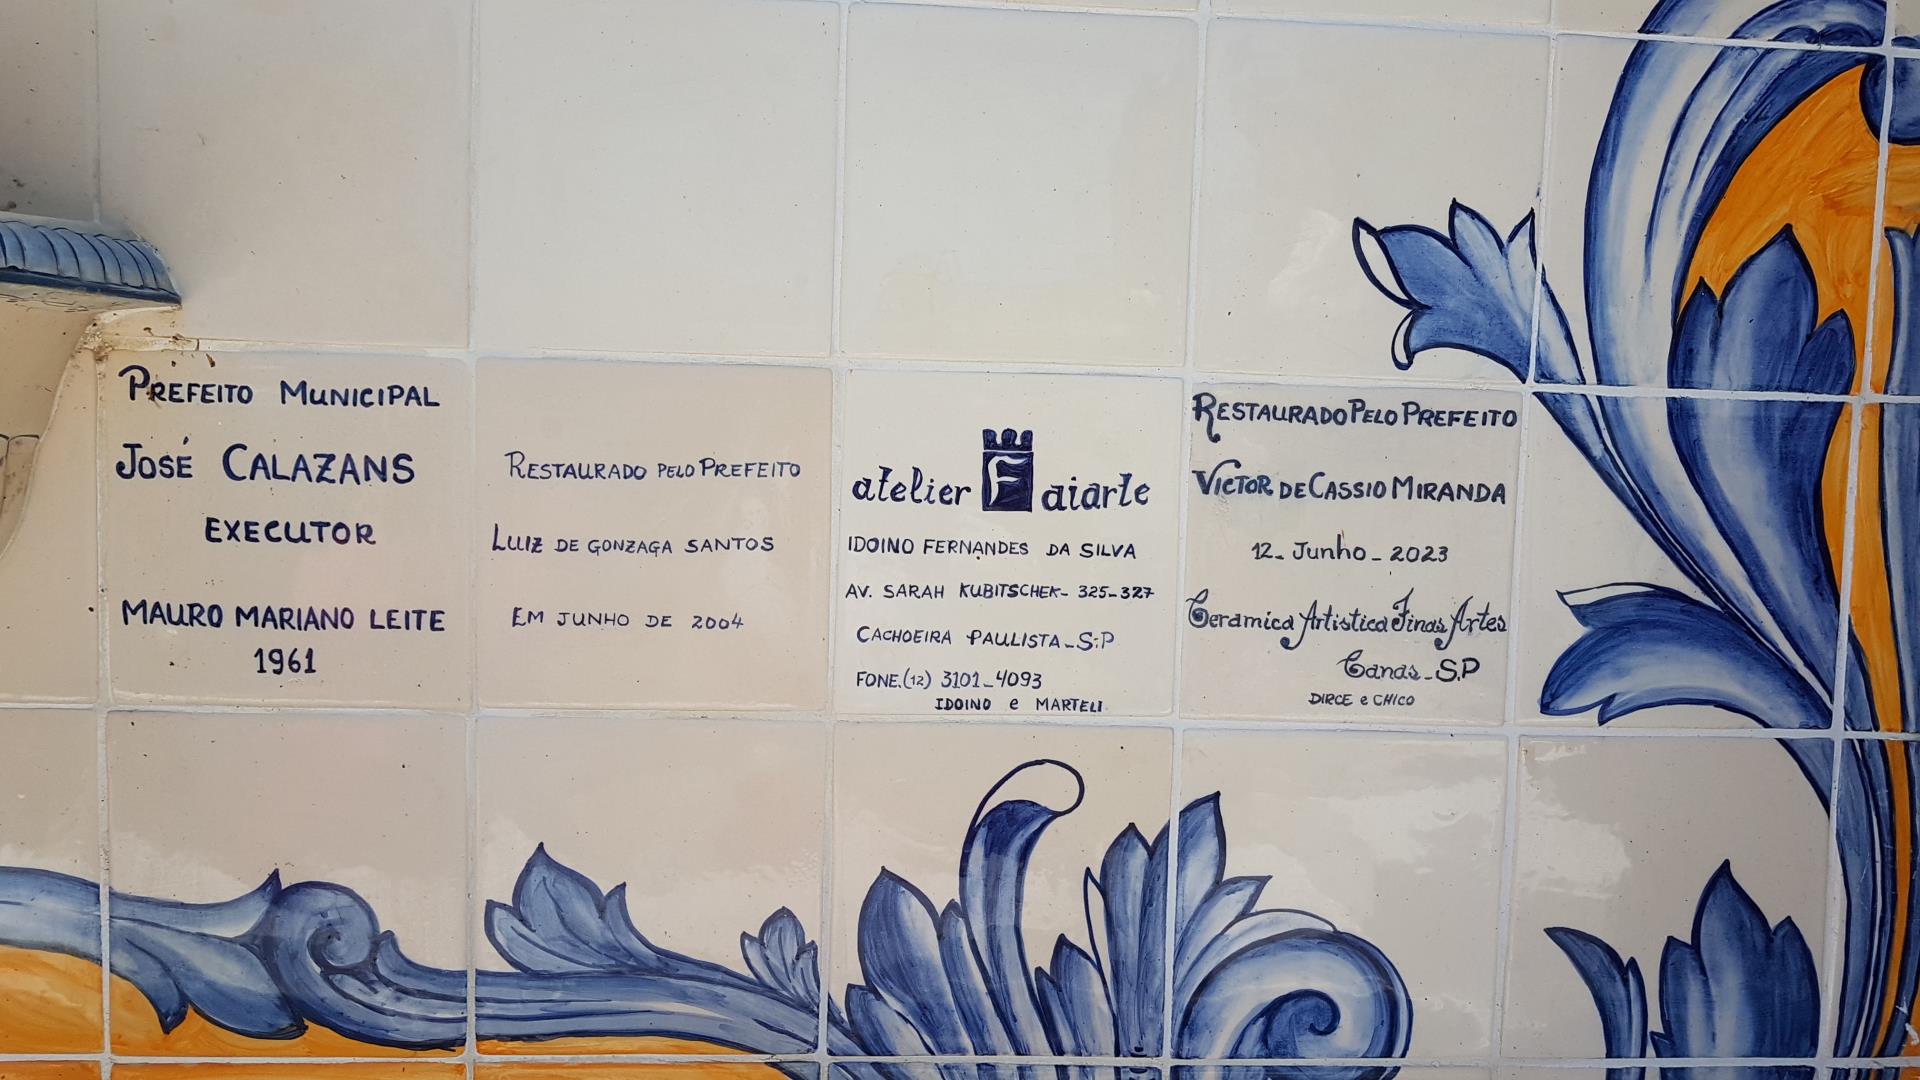 PREFEITO MUNICIPAL
JOSÉ CALAZANS
EXECUTOR
MAURO MARIANO LEITE
1961
RESTAURADO PELO PREFEITO
LUIZ DE GONZAGA SANTOS
EM JUNHO DE 2004
atelier Faiarte
IDOINO FERNANDES DA SILVA
AV. SARAH KUBITSCHEK - 325-327
CACHOEIRA PAULISTA - S.P
FONE.(12) 3101-4093
IDOINO e MARTELI
RESTAURADO PELO PREFEITO
VICTOR DE CASSIO MIRANDA
12 - Junho - 2023
Ceramica Artistica Finas Artes
Canas - S.P
DIRCE e CHICO